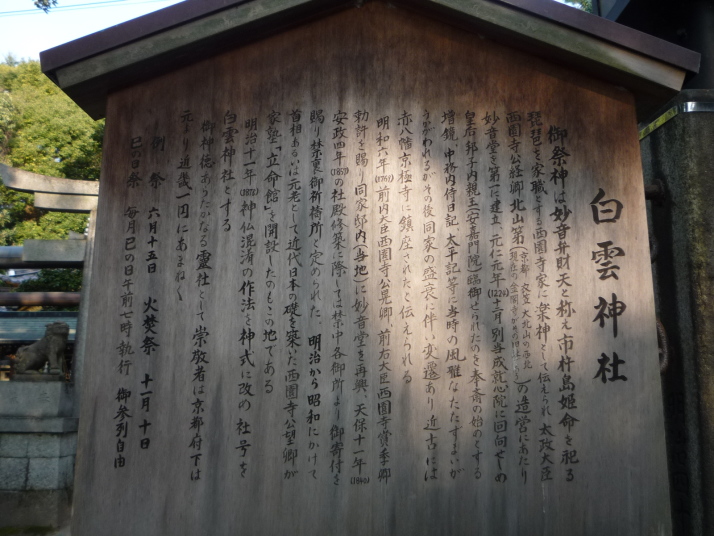 白雲神社
御祭神は妙音弁財天と称え市杵島姫命を祀る
琵琶を家職とする西園寺家に楽神として伝えられ太政大臣
西園寺公経卿北山第(京都衣笠大北山の西北 現在の金閣寺がその旧址)の造営にあたり
妙音堂を第一に建立 元仁元年(1224)十二月 別当成就心院に回向せしめ
皇后邦子内親王(安嘉門院)臨御せられたのを奉斎の始めとする
増鏡 中務内侍日記 太平記等に当時の風雅なたたずまいが
うかがわれるがその後同家の盛衰に伴い変遷あり近古には
赤八幡京極寺に鎮座されたと伝えられる
明和六年(1769)前内大臣西園寺公晃卿 前右大臣西園寺賞季卿
勅許を賜り同家邸内(当地)に妙音堂を再興 天保十一年(1840)
安政四年(1857)の社殿修築に際しては禁中各御所より御寄付を
賜り禁裏御祈祷所と定められた 明治から昭和にかけて
首相あるいは元老として近代日本の礎を築いた西園寺公望卿が
家塾「立命館」を開設したのもこの地である
明治十一年(1878)神仏混淆の作法を神式に改め社号を
白雲神社とする
御神徳あらたかなる霊社として崇敬者は京都府下は
元より近畿一円にあまねく
例祭 六月十五日 火焚祭 十一月十日
巳の日祭 毎月巳の日午前七時執行 御参列自由